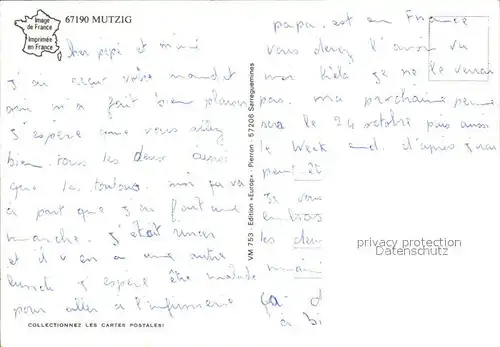 Image
de France
Imprimée
en France
67190 MUTZIG
cher pépé et mimi
j'ai reçu votre mandat
qui m'a fait bien plaisir
j'espère que vous allez
bien tous les deux ainsi
que la toutous. moi ça va
à part que j'ai fait une
marche. j'était
et il y en a une autre
lundi j'espère être malade
pour aller à l'infirmerie
COLLECTIONNEZ LES CARTES POSTALES!
VM 753 - Edition «Europ» - Pierron - 57206 Sarreguemines
papa est en France
vous devez l'avoir vu
moi hélas je ne le verrai
pas. ma prochaine perme
sera le 24 octobre puis aussi
le week end. d'après j'aurai
peut
Je vous
embras
les deux
mimi
ça d
à bi
privacy protection
Datenschutz